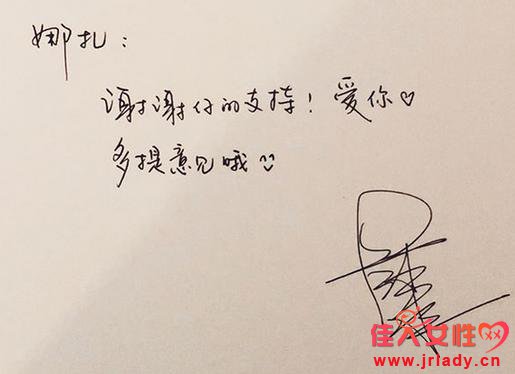 娜扎：
谢谢仔的支持！爱你♡
多提意见哦
佳人女性网
www.jrlady.cn